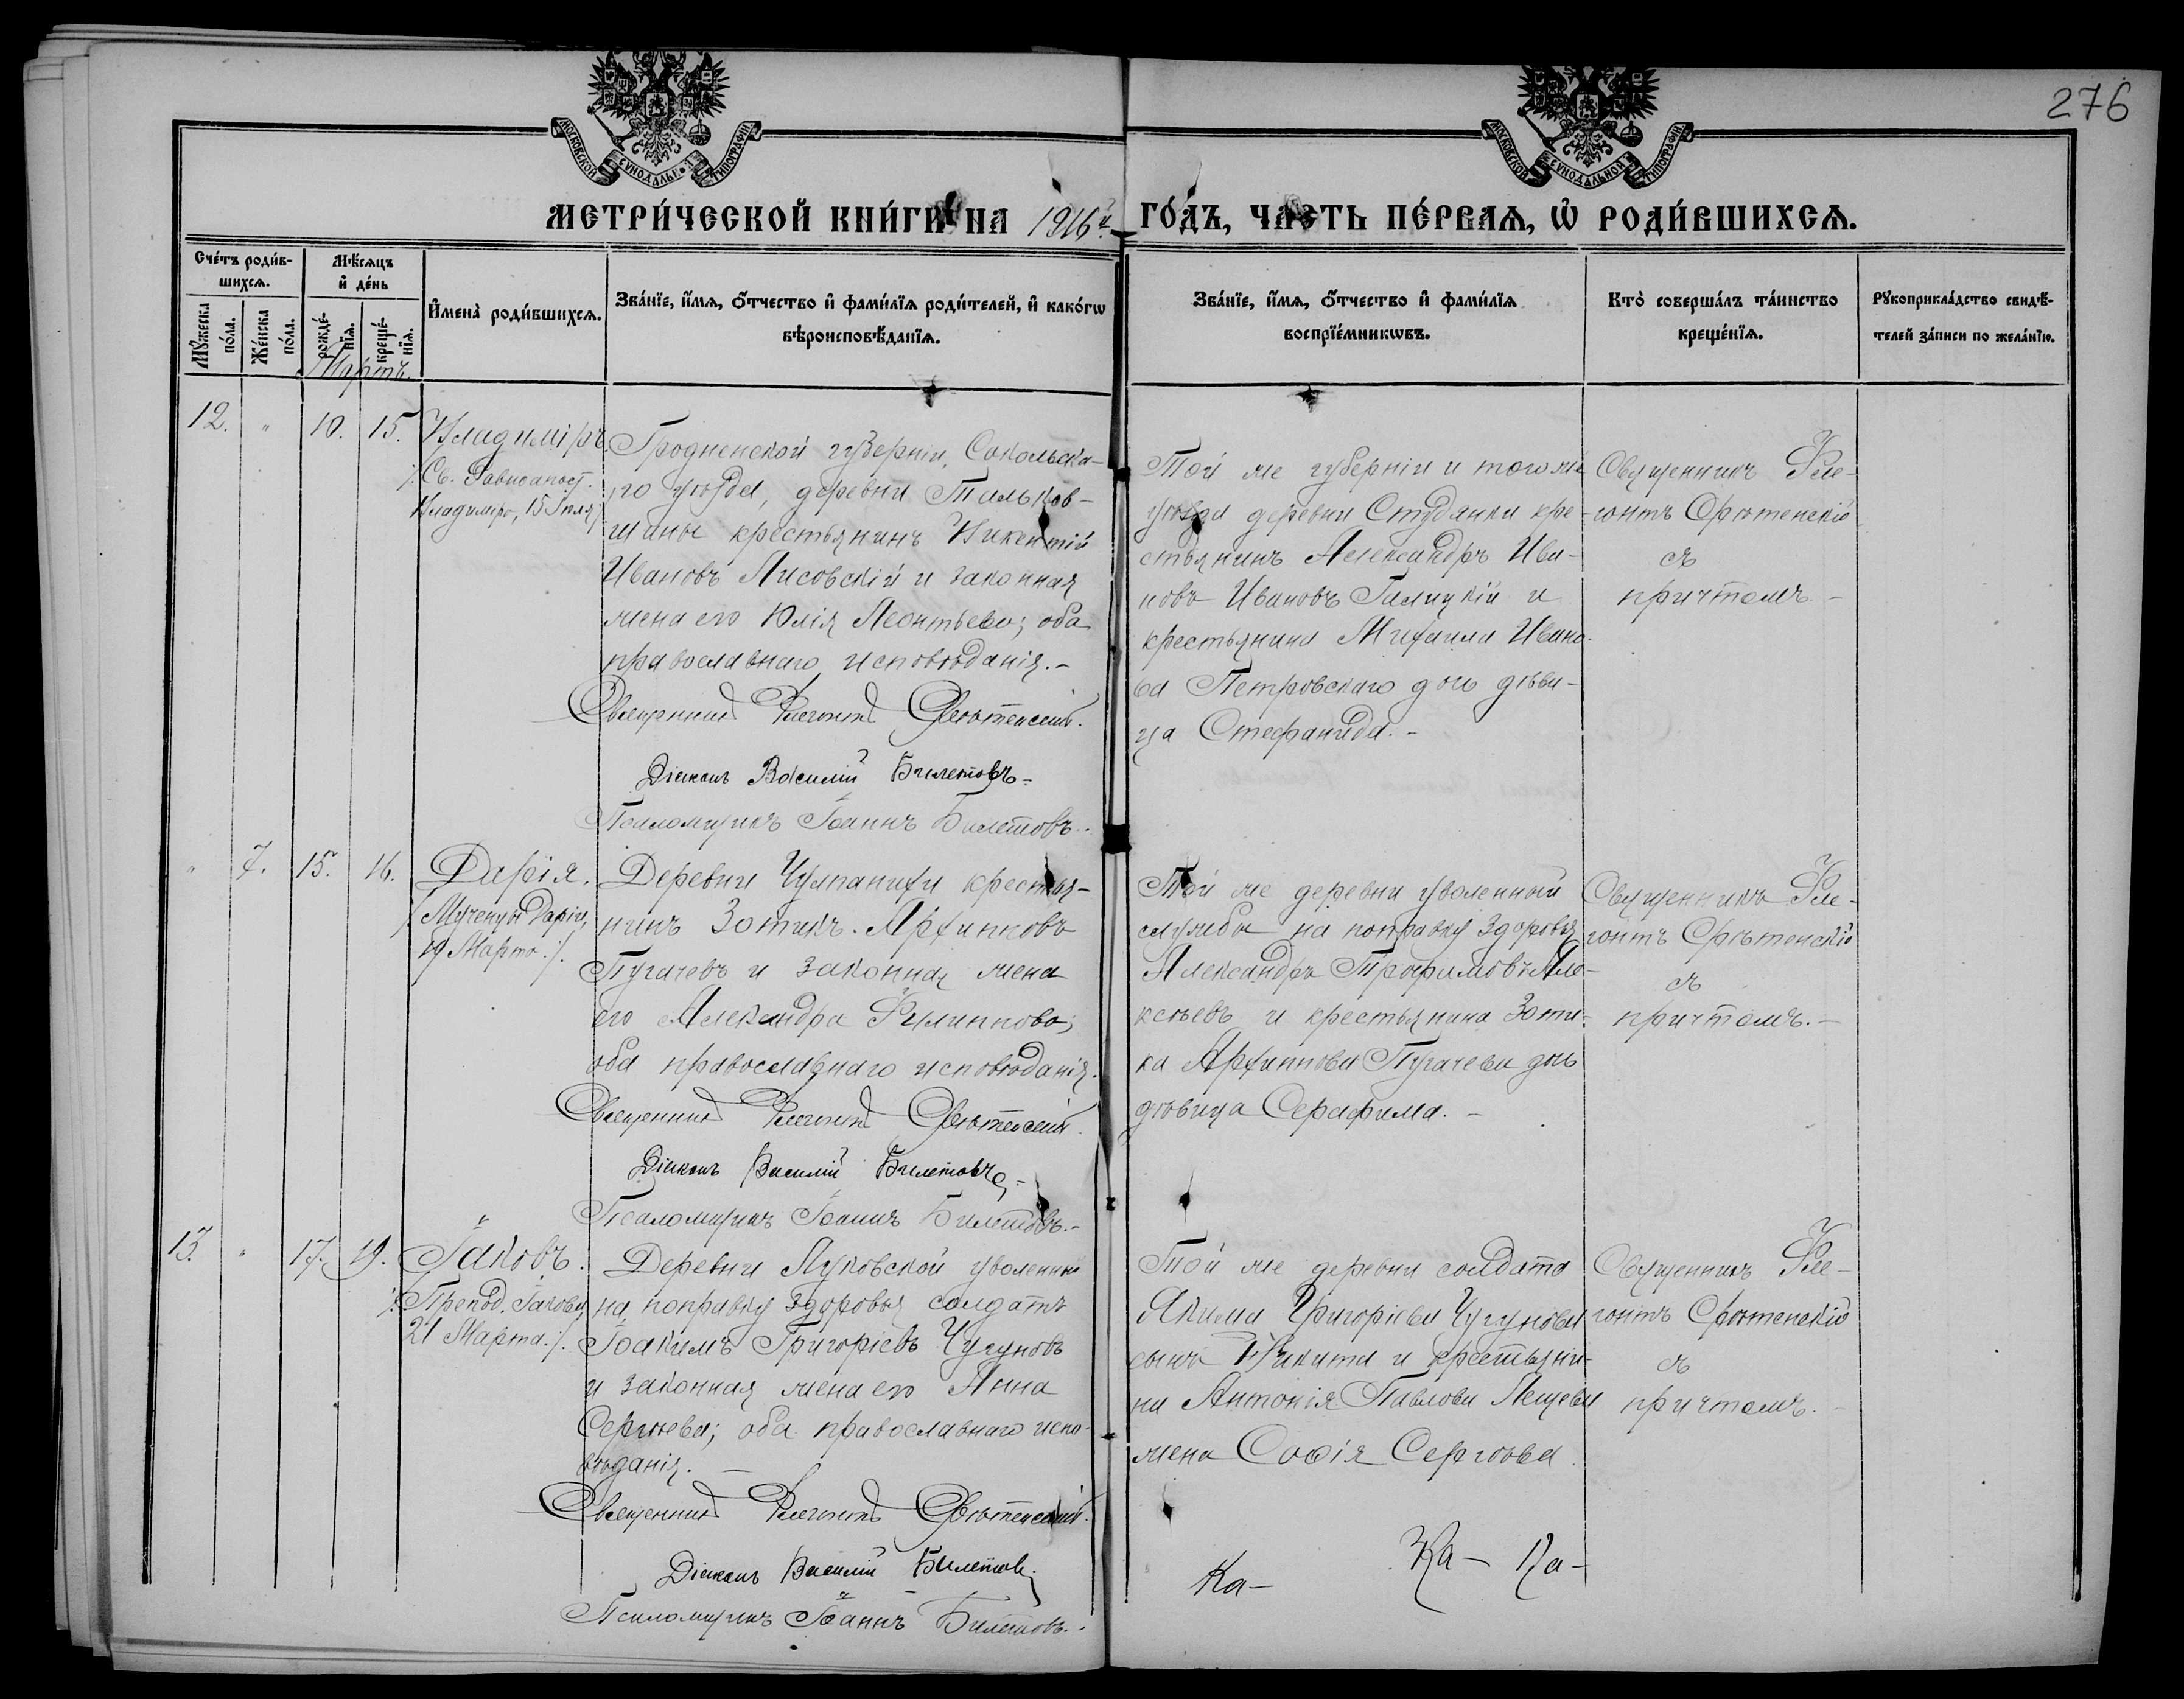 276
МОСКОВСКОЙ СѴНОДАЛЬН. ТИПОГРАФІИ
МОСКОВСКОЙ СѴНОДАЛЬНОЙ ТИПОГРАФІИ
МЕТРИ́ЧЕСКОЙ КНИ́ГИ НА 1916й ГО́ДЪ, ЧА́СТЬ ПЕ́РВАЯ, Ѡ РОДИ́ВШИХСЯ.
Сче́тъ роди́в-
шихся.
Мѣ́сяцъ
и҆ де́нь
Мꙋ́жеска
по́ла.
Же́нска
по́ла.
рожде́-
нїя.
креще́-
нїя.
Мартъ.
И҆мена̀ роди́вшихся.
Зва́нїе, и҆́мя, ѻ҆́тчество и҆ фами́лїя роди́телей, и҆ како́гѡ
вѣроисповѣ́данїя.
Зва́нїе, и҆́мя, ѻ҆́тчество и҆ фами́лїя
воспрїе́мникѡвъ.
Кто̀ соверша́лъ та́инство
креще́нїя.
Рꙋкоприкла́дство свидѣ́-
телей за́писи по жела́нїю.
12. " 10. 15. Владиміръ.
/: Св. Равноапост.
Владиміра, 15 Іюля
Гродненской губерніи, Сокольска-
го уѣзда, деревни Тальков-
шины крестьянинъ Викентій
Ивановъ Лисовскій и законная
жена его Юлія Леонтьева; оба
православнаго исповѣданія.-
Священникъ Флегонтъ Срѣтенскій.
Діаконъ Василій Билетовъ-
Псаломщикъ Іоаннъ Билетовъ.-
Той же губерніи и того же
уѣзда деревни Студянки кре-
стьянинъ Александръ Ива-
новъ Ивановъ Галицкій и
крестьянина Михаила Ивано-
ва Петровскаго дочь дѣви-
ца Стефанида.-
Священникъ Фле-
гонтъ Срѣтенскій
съ
причтомъ.-
" 7. 15. 16. Дарія.
/: Мученицы Даріи,
19 Марта :/.
Деревни Чулпанихи крестья-
нинъ Зотикъ Архипповъ
Пугачевъ и законная жена
его Александра Филиппова;
оба православнаго исповѣданія.
Священникъ Флегонтъ Срѣтенскій.
Діаконъ Василій Билетовъ-
Псаломщикъ Іоаннъ Билетовъ.-
Той же деревни уволенный
службы на поправку здоровья
Александръ Трофимовъ Але-
ксѣевъ и крестьянина Зоти-
ка Архиппова Пугачева дочь
дѣвица Серафима.-
Священникъ Фле-
гонтъ Срѣтенскій
съ
причтомъ.-
13. " 17. 19. Іаковъ.
/: Препод. Іакова,
21 Марта :/.
Деревни Луковской уволенный
на поправку здоровья солдатъ
Іоакимъ Григоріевъ Чугуновъ
и законная жена его Анна
Сергѣева; оба православнаго испо-
вѣданія.-
Священникъ Флегонтъ Срѣтенскій.
Діаконъ Василій Билетовъ
Псаломщикъ Іоаннъ Билетовъ.-
Той же деревни солдата
Якима Григоріева Чугунова
сынъ Никита и крестьяни-
на Антонія Павлова
жена Софія Сергѣева
Священникъ Фле-
гонтъ Срѣтенскій
съ
причтомъ.-
Ка-